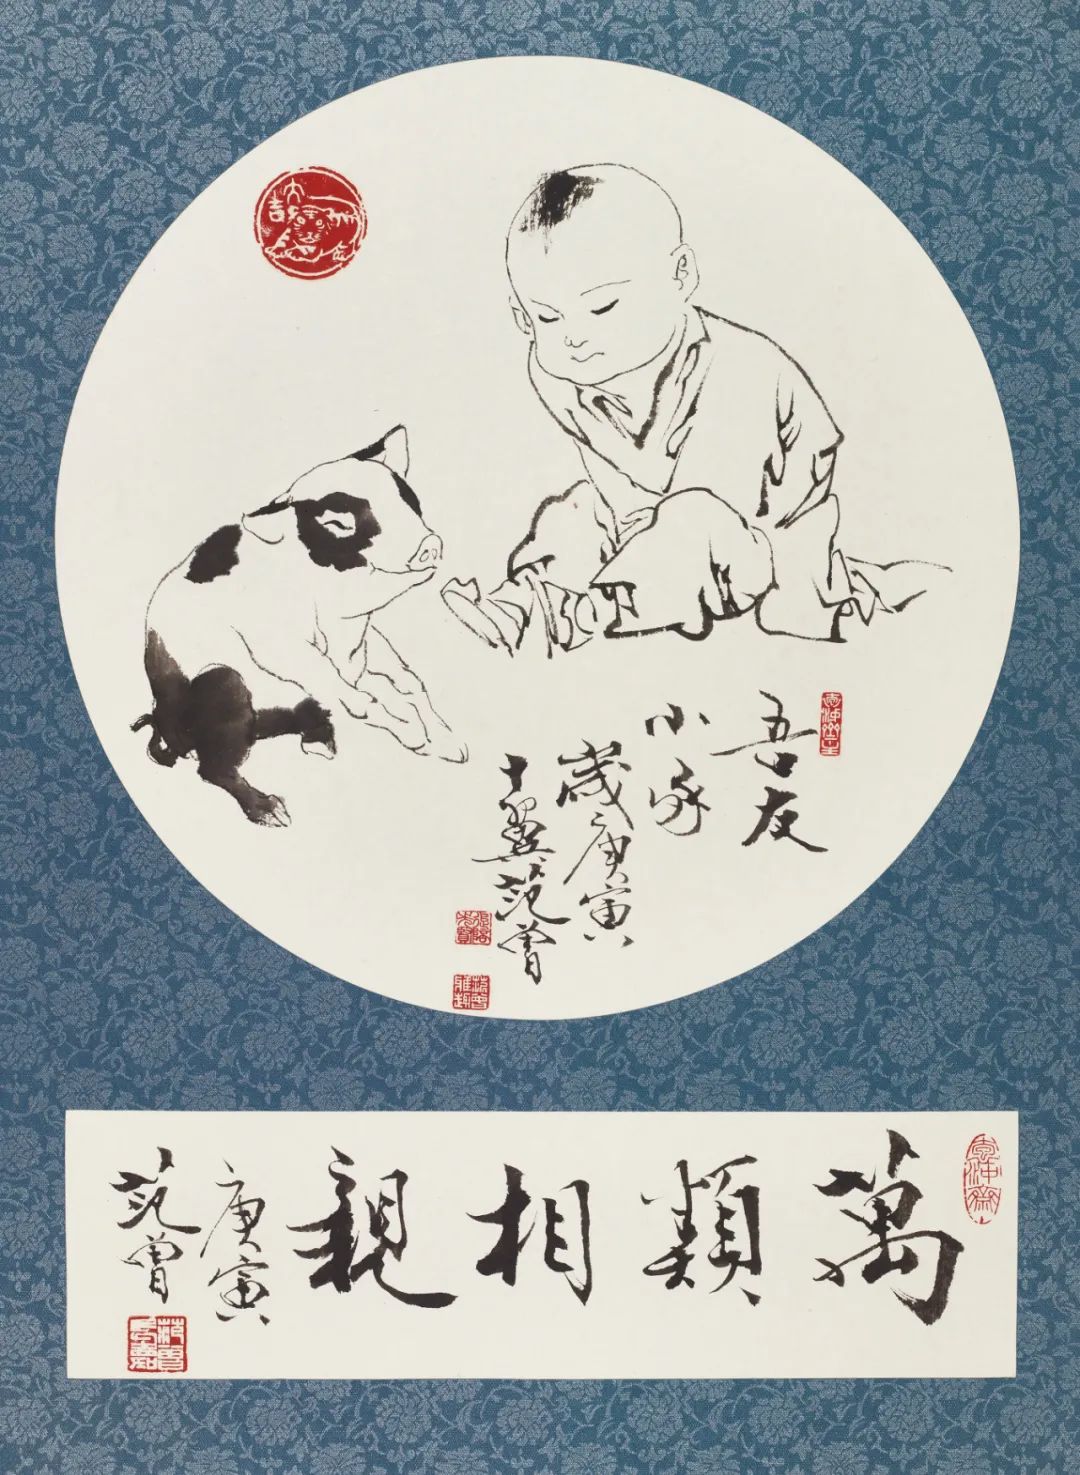 吾友
小豕
歲庚寅
十翼范曾
萬類相親
庚寅
范曾